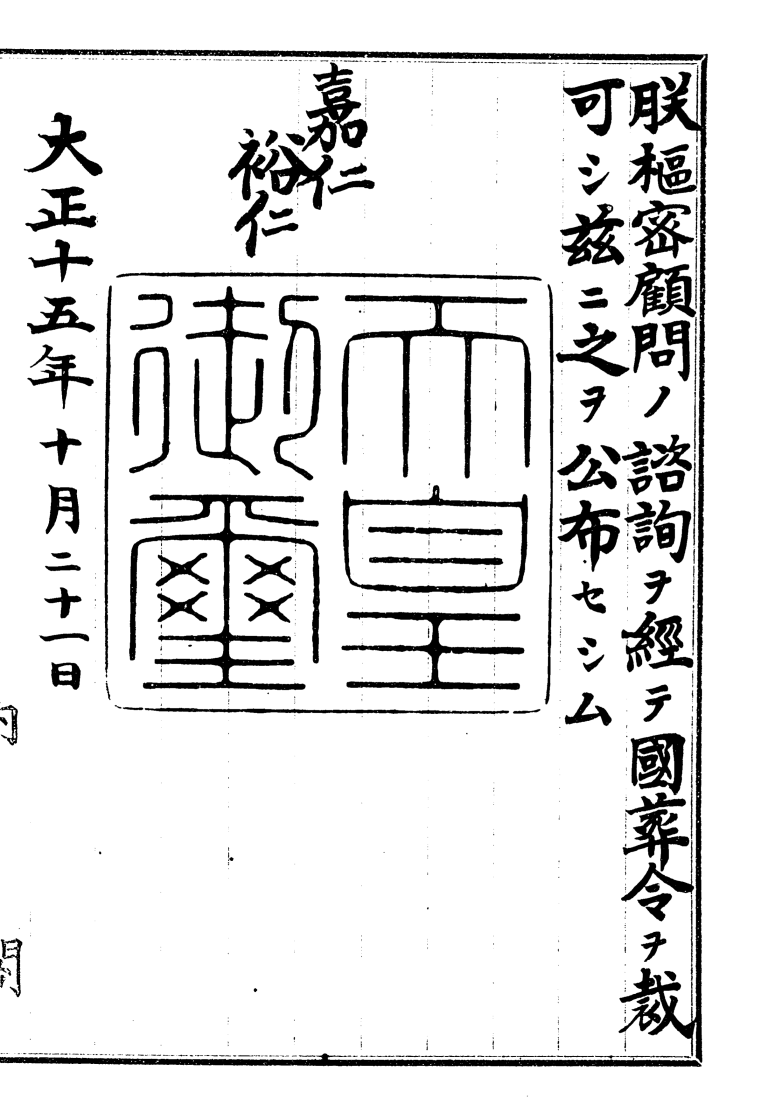 朕樞密顧問ノ諮詢ヲ經テ國葬令ヲ裁
可シ茲ニ之ヲ公布セシム
嘉仁
裕仁
天皇
御璽
大正十五年十月二十一日